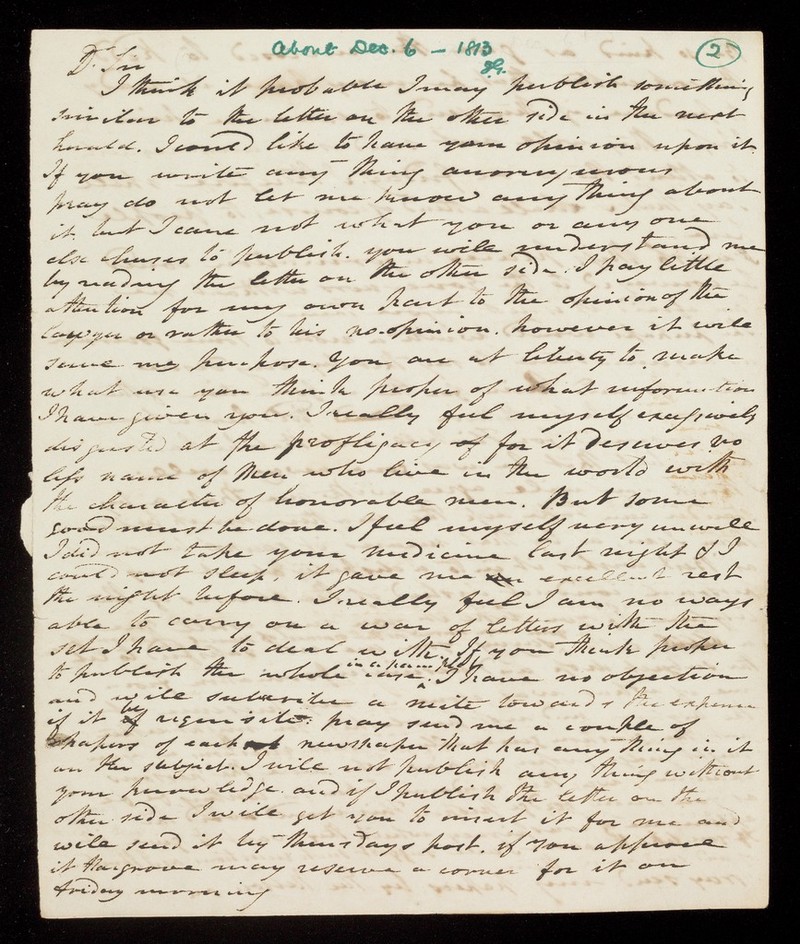 About Dec. 6 - 1813
2
Dr Sir
I think it probable I may publish something
similar to the letter on the other side in the next
herald. I could like to have your opinion upon it.
If you write any thing anonymous
pray do not let me know any thing about
it but I care not what you or any one
else chuses to publish. you will understand me
by reading the letter on the other side. I pay little
attention for my own part to the opinion of the
lawyer or rather to his no-opinion. however it will
serve my purpose. You are at liberty to make
what use you think proper of what information
I have given you. I really feel myself excessively
disgusted at the profligacy of for it deserves no
less name of Men who live in the world with
the character of honorable men. But some
good must be done. I feel myself very unwell
I did not take your medicine last night & I
could not sleep. it gave me excellent rest
the night before. I really feel I am no ways
able to carry on a war of letters with the
set I have to deal with. If you think proper
to publish the whole case in a pamphlet, I have no objection
and will subscribe a mite towards the expence
if it be requisite: pray send me a couple of
papers of each newspaper that has any thing in it
on the subject. I will not publish any thing without
your knowledge. and if I publish the letter on the
other side I will get you to insert it for me and
will send it by thursdays post. if you approve
it Hargrove may reserve a corner for it on
friday morning